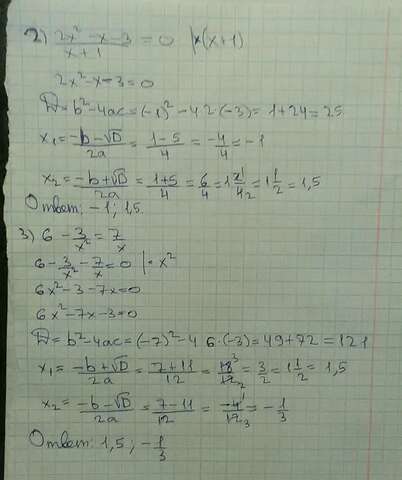 2) (2x² - x - 3)/(x + 1) = 0 |×(x+1)
2x² - x - 3 = 0
D = b² - 4ac = (-1)² - 4 2·(-3) = 1 + 24 = 25
x₁ = (-b - √D)/2a = (1 - 5)/4 = -4/4 = -1
x₂ = (-b + √D)/2a = (1 + 5)/4 = 6/4 = 1 2̶¹/4̶₂ = 1 1/2 = 1,5
Ответ: -1; 1,5.
3) 6 - 3/x² = 7/x
6 - 3/x² - 7/x = 0 |· x²
6x² - 3 - 7x = 0
6x² - 7x - 3 = 0
D = b² - 4ac = (-7)² - 4 6·(-3) = 49 + 72 = 121
x₁ = (-b + √D)/2a = (7 + 11)/12 = 1̶8̶³/1̶2̶₂ = 3/2 = 1 1/2 = 1,5
x₂ = (-b - √D)/2a = (7 - 11)/12 = -4̶¹/1̶2̶₃ = -1/3
Ответ: 1,5; -1/3